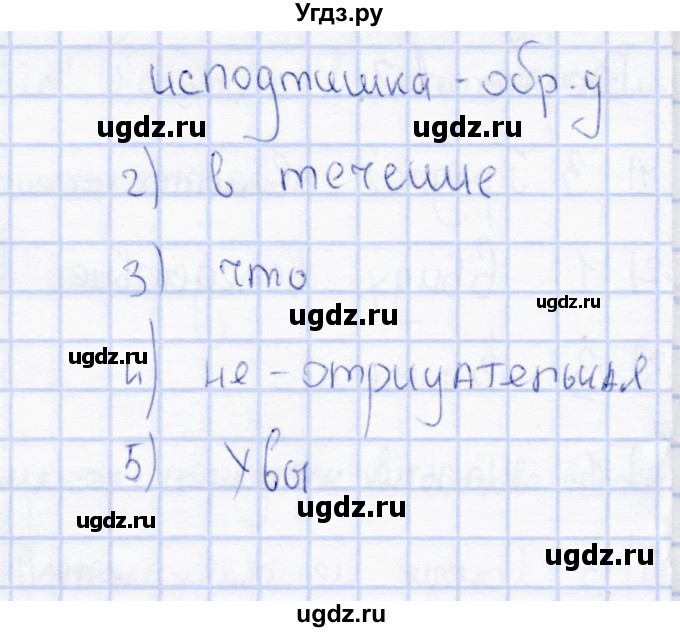 Угдз.ру
исподтишка - обр. д
ugdz.ru ugdz.ru
2) в течение
3) что
ugdz.ru ugdz.ru
ugdz.ru
4) не - отрицательная
5) Увы
ugdz.ru ugdz.ru
ugdz.ru
ugdz.ru